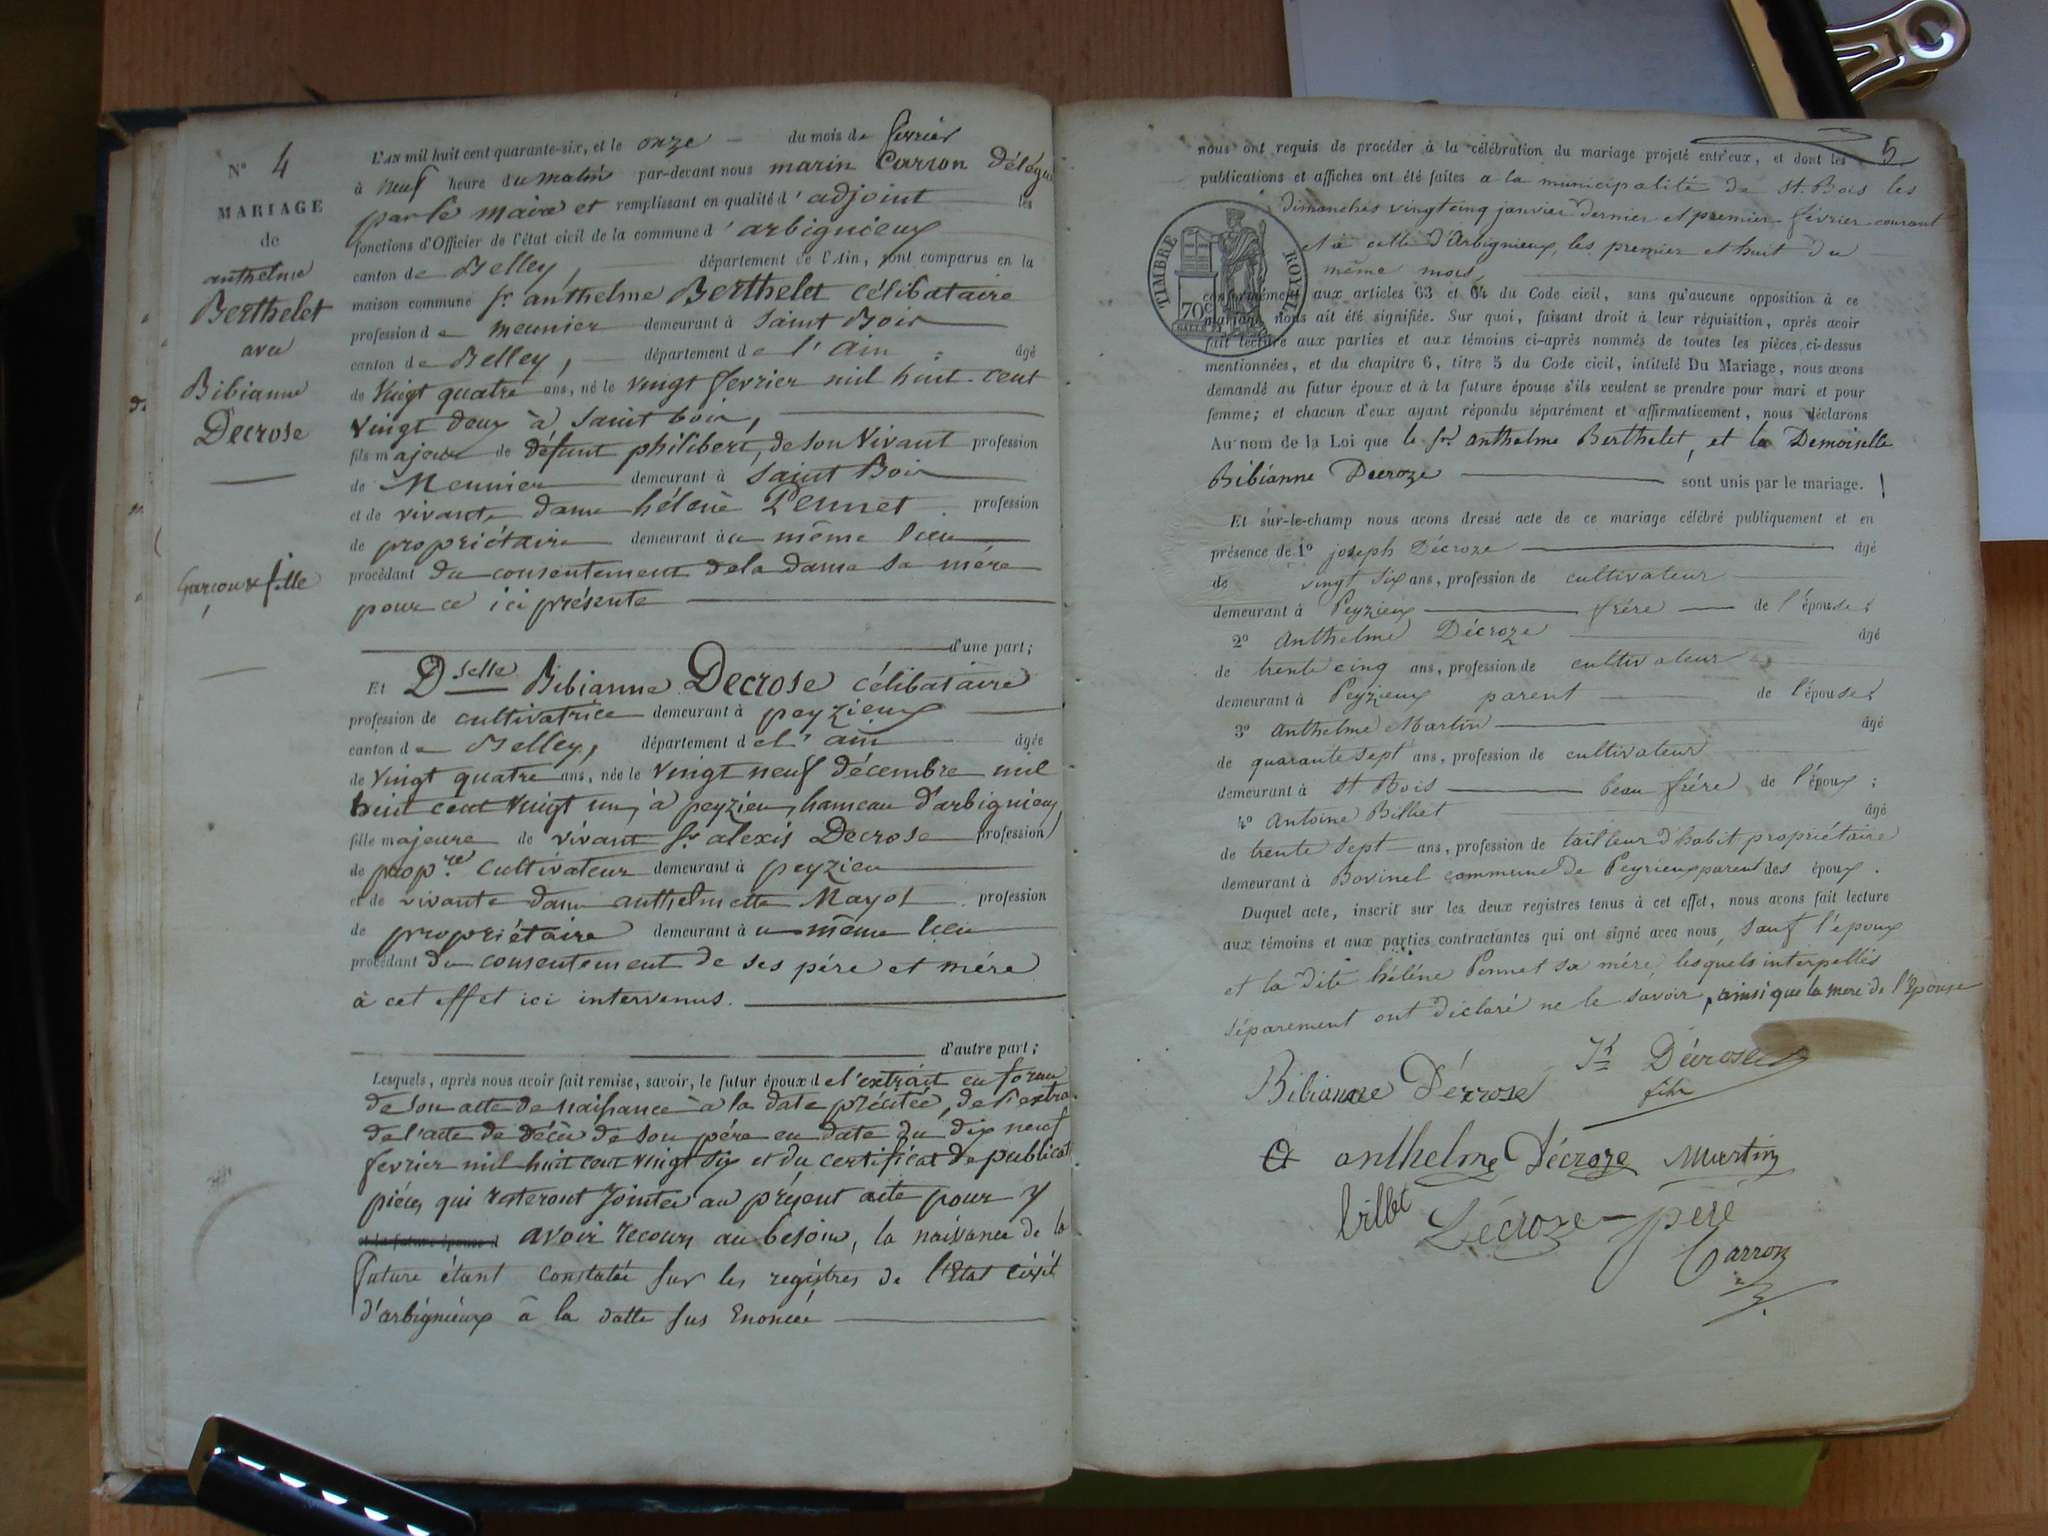 N° 4
MARIAGE
de
anthelme
Berthelet
avec
Bibianne
Decrose
Garçon & fille
L'AN mil huit cent quarante-six, et le onze du mois de fevrier
à neuf heure du matin par-devant nous marin Carron délégué
par le maire et remplissant en qualité d'adjoint les
fonctions d'Officier de l'état civil de la commune d'arbignieux
canton de Belley, département de l'Ain, sont comparus en la
maison commune sr anthelme Berthelet célibataire
profession de meunier demeurant à Saint Bois
canton de Belley, département de l'Ain âgé
de vingt quatre ans, né le vingt fevrier mil huit cent
vingt deux à Saint bois,
fils majeur de défunt philibert, de son vivant profession
de Meunier demeurant à Saint Bois
et de vivante dame hélène Pennet profession
de propriétaire demeurant au même lieu
procédant du consentement de la dame sa mère
pour ce ici présente
d'une part;
Et Dselle Bibianne Decrose célibataire
profession de cultivatrice demeurant à peyzieux
canton de Belley, département de l'ain âgée
de vingt quatre ans, née le vingt neuf décembre mil
huit cent vingt un, à peyzieu, hameau d'arbignieux
fille majeure de vivant sr alexis Decrose profession
de propre cultivateur demeurant à peyzieu
et de vivante dame anthelmette Mayot profession
de propriétaire demeurant au même lieu
procédant du consentement de ses père et mère
à cet effet ici intervenus.
d'autre part;
Lesquels, après nous avoir fait remise, savoir, le futur époux de l'extrait en forme
de son acte de naissance à la date précitée, de l'extra
de l'acte de décès de son père en date du dix neuf
fevrier mil huit cent vingt six et du certificat de publicat
pièces qui resteront jointes au présent acte pour y
et la future épouse d avoir recours au besoin, la naissance de la
future étant constatée sur les registres de l'Etat civil
d'arbignieux à la datte sus Enoncée
5
nous ont requis de procéder à la célébration du mariage projeté entr'eux, et dont les
publications et affiches ont été faites a la municipalité de St. Bois les
dimanches vingt cinq janvier dernier et premier février courant
et à celle d'Arbignieux, les premier et huit du
même mois,
TIMBRE ROYAL
70c
conformément aux articles 63 et 64 du Code civil, sans qu'aucune opposition à ce
mariage nous ait été signifiée. Sur quoi, faisant droit à leur réquisition, après avoir
fait lecture aux parties et aux témoins ci-après nommés de toutes les pièces ci-dessus
mentionnées, et du chapitre 6, titre 5 du Code civil, intitulé Du Mariage, nous avons
demandé au futur époux et à la future épouse s'ils veulent se prendre pour mari et pour
femme; et chacun d'eux ayant répondu séparément et affirmativement, nous déclarons
Au nom de la Loi que le sr. Anthelme Berthelet, et la Demoiselle
Bibianne Decroze sont unis par le mariage.
Et sur-le-champ nous avons dressé acte de ce mariage célébré publiquement et en
présence de 1° joseph Décroze âgé
de vingt six ans, profession de cultivateur
demeurant à Peyzieux frère de l'épouse;
2° Anthelme Décroze âgé
de trente cinq ans, profession de cultivateur
demeurant à Peyzieux parent de l'épouse;
3° Anthelme Martin âgé
de quarante sept ans, profession de cultivateur
demeurant à St Bois beau frère de l'époux;
4° Antoine Billiet âgé
de trente sept ans, profession de tailleur d'habit propriétaire
demeurant à Bovinel commune de Peyrieux parent des époux.
Duquel acte, inscrit sur les deux registres tenus à cet effet, nous avons fait lecture
aux témoins et aux parties contractantes qui ont signé avec nous, sauf l'époux
et la dite hélène Pennet sa mère, lesquels interpellés
séparement ont déclaré ne le savoir, ainsi que la mere de l'Epouse
Bibianne Décrose Jh Décrose
fils
anthelme Décroze Martin
billet Décroze père
Carron